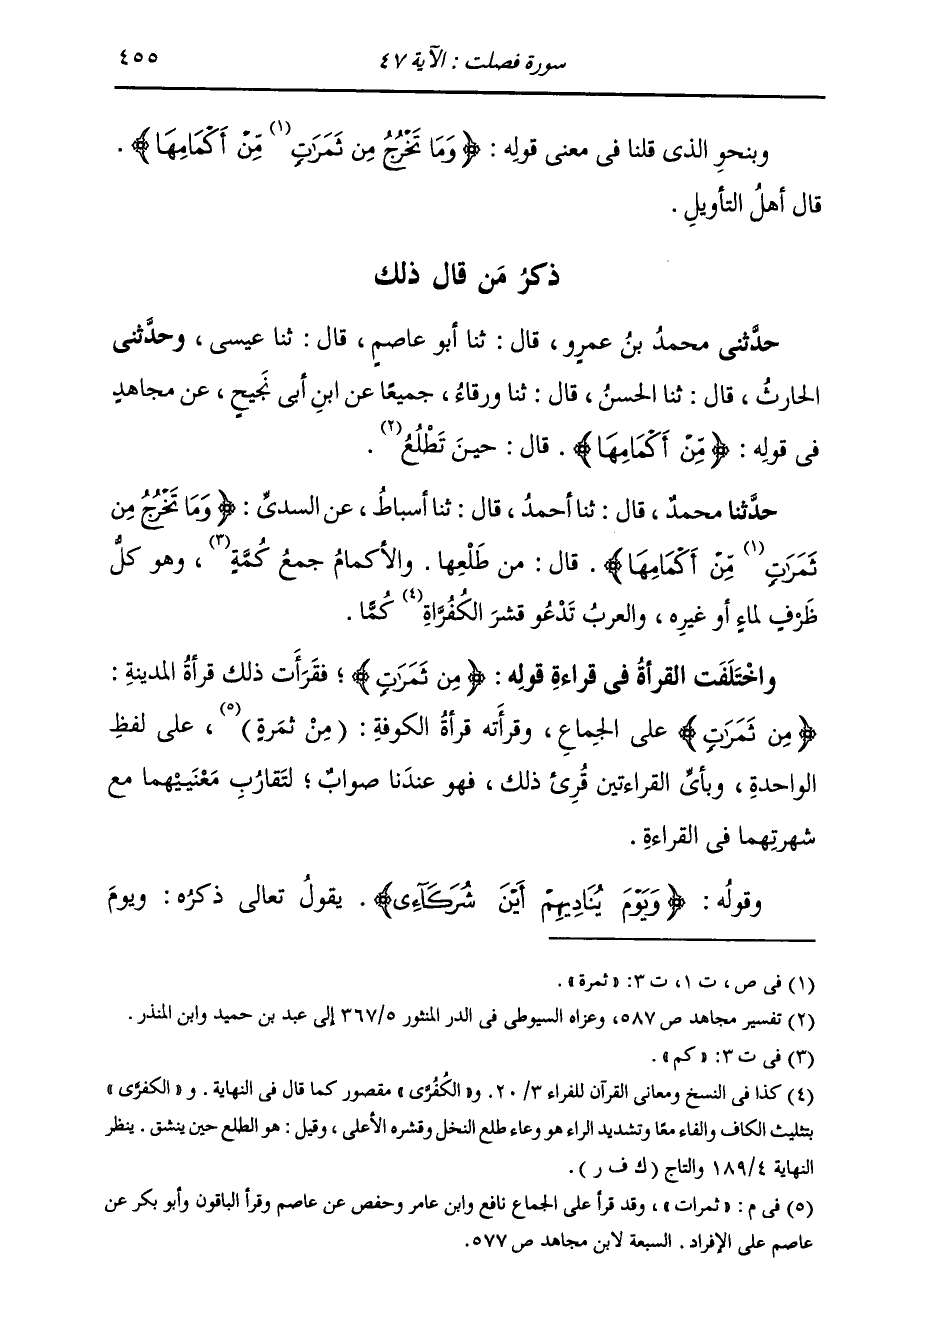 سورة فصلت : الآية ٤٧
٤٥٥
وبنحوِ الذى قلنا فى معنى قولِه : ﴿ وَمَا تَخْرُجُ مِن ثَمَرَٰتٍ(١) مِّنْ أَكْمَامِهَا ﴾ .
قال أهلُ التأويلِ .
ذكرُ مَن قال ذلك
حدَّثنى محمدُ بنُ عمرٍو ، قال : ثنا أبو عاصمٍ ، قال : ثنا عيسى ، وحدَّثنى
الحارثُ ، قال : ثنا الحسنُ ، قال : ثنا ورقاءُ ، جميعًا عن ابنِ أبى نَجيحٍ ، عن مجاهدٍ
فى قولِه : ﴿ مِّنْ أَكْمَامِهَا ﴾ . قال : حينَ تَطْلُعُ(٢) .
حدَّثنا محمدٌ ، قال : ثنا أحمدُ ، قال : ثنا أسباطُ ، عن السدىِّ : ﴿ وَمَا تَخْرُجُ مِن
ثَمَرَٰتٍ(١) مِّنْ أَكْمَامِهَا ﴾ . قال : من طَلْعِها . والأكمامُ جمعُ كُمَّةٍ(٣) ، وهو كلُّ
ظَرْفٍ لماءٍ أو غيرِه ، والعربُ تَدْعُو قشرَ الكُفُرَّاةِ(٤) كُمًّا .
واخْتَلَفَت القرأةُ فى قراءةِ قولِه : ﴿ مِن ثَمَرَٰتٍ ﴾ ؛ فقَرَأَت ذلك قرأةُ المدينةِ :
﴿ مِن ثَمَرَٰتٍ ﴾ على الجِماعِ ، وقرأَته قرأةُ الكوفةِ : ( مِنْ ثمرةٍ )(٥) ، على لفظِ
الواحدةِ ، وبأىِّ القراءتين قُرِئ ذلك ، فهو عندَنا صوابٌ ؛ لتَقارُبِ مَعْنَيَيْهما مع
شهرتِهما فى القراءةِ .
وقولُه : ﴿ وَيَوْمَ يُنَادِيهِمْ أَيْنَ شُرَكَآءِى ﴾ . يقولُ تعالى ذكرُه : ويومَ
(١) فى ص ، ت ١، ت ٣: « ثمرة » .
(٢) تفسير مجاهد ص ٥٨٧، وعزاه السيوطى فى الدر المنثور ٣٦٧/٥ إلى عبد بن حميد وابن المنذر .
(٣) فى ت ٣: « كم » .
(٤) كذا فى النسخ ومعانى القرآن للفراء ٣/ ٢٠. و« الكُفُرَّى » مقصور كما قال فى النهاية . و « الكفرَّى »
بتثليث الكاف والفاء معًا وتشديد الراء هو وعاء طلع النخل وقشره الأعلى ، وقيل : هو الطلع حين ينشق . ينظر
النهاية ١٨٩/٤ والتاج ( ك ف ر ) .
(٥) فى م : « ثمرات » ، وقد قرأ على الجماع نافع وابن عامر وحفص عن عاصم وقرأ الباقون وأبو بكر عن
عاصم على الإفراد . السبعة لابن مجاهد ص ٥٧٧.